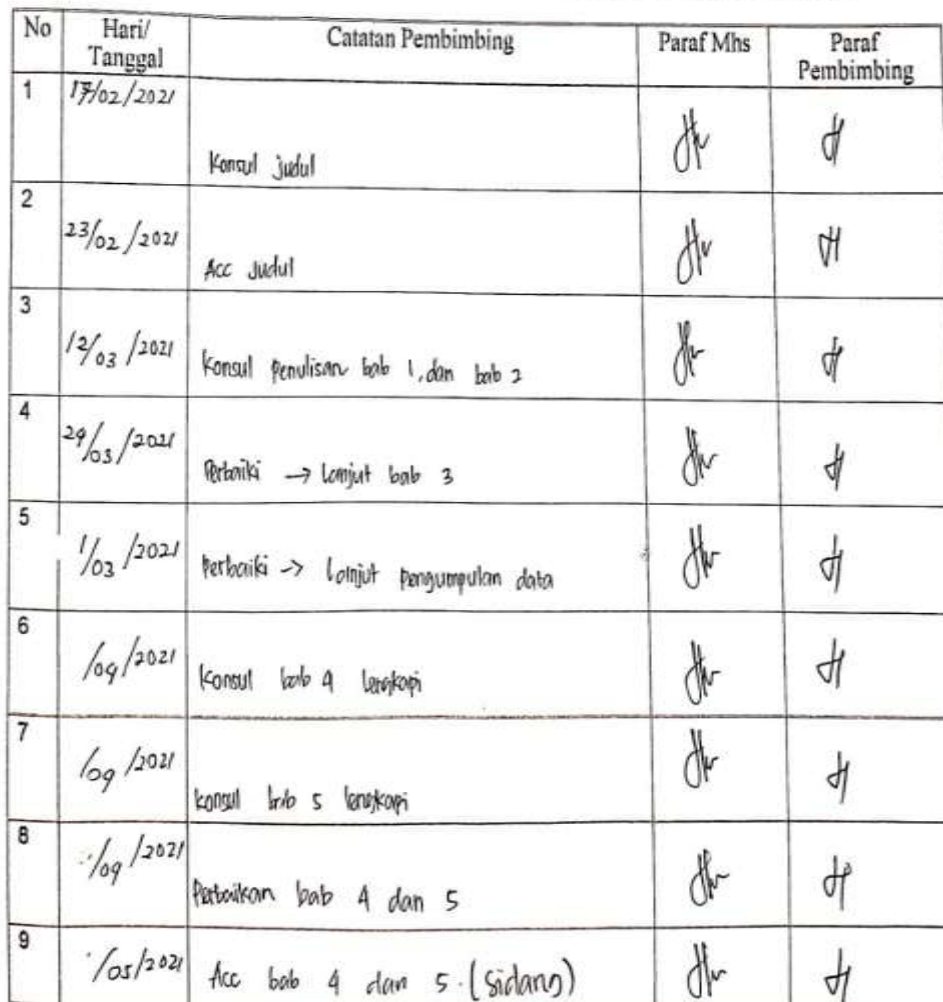 No Hari/ Tanggal Catatan Pembimbing Paraf Mhs Paraf Pembimbing
1 17/02/2021 Konsul judul
2 23/02/2021 Acc Judul
3 12/03/2021 Konsul Penulisan bab 1, dan bab 2
4 29/03/2021 Perbaiki → Lanjut bab 3
5 1/03/2021 Perbaiki → Lanjut pengumpulan data
6 /04/2021 Konsul bab 4 lengkapi
7 /04/2021 konsul bab 5 lengkapi
8 /04/2021 Perbaikan bab 4 dan 5
9 /05/2021 Acc bab 4 dan 5. (Sidang)